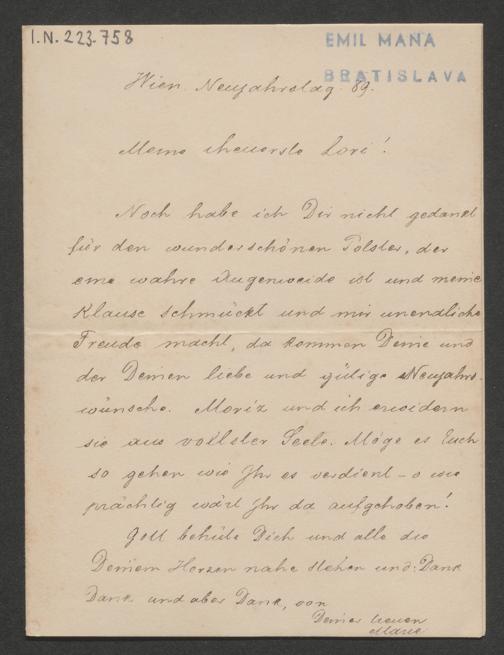 I.N. 223.758
EMIL MAŇA
BRATISLAVA
Wien Neujahrstag 89.
Meine theuerste Lori!
Noch habe ich Dir nicht gedankt
für den wunderschönen Polster, der
eine wahre Augenweide ist und meine
Klause schmückt und mir unendliche
Freude macht, da kommen Deine und
der Deinen liebe und gütige Neujahrs-
wünsche. Moriz und ich erwidern
sie aus vollster Seele. Möge es Euch
so gehen wie Ihr es verdient – o wie
prächtig wärt Ihr da aufgehoben!
Gott behüte Dich und alle die
Deinem Herzen nahe stehen und: Dank
Dank und aber Dank, von
Deiner treuen
Marie